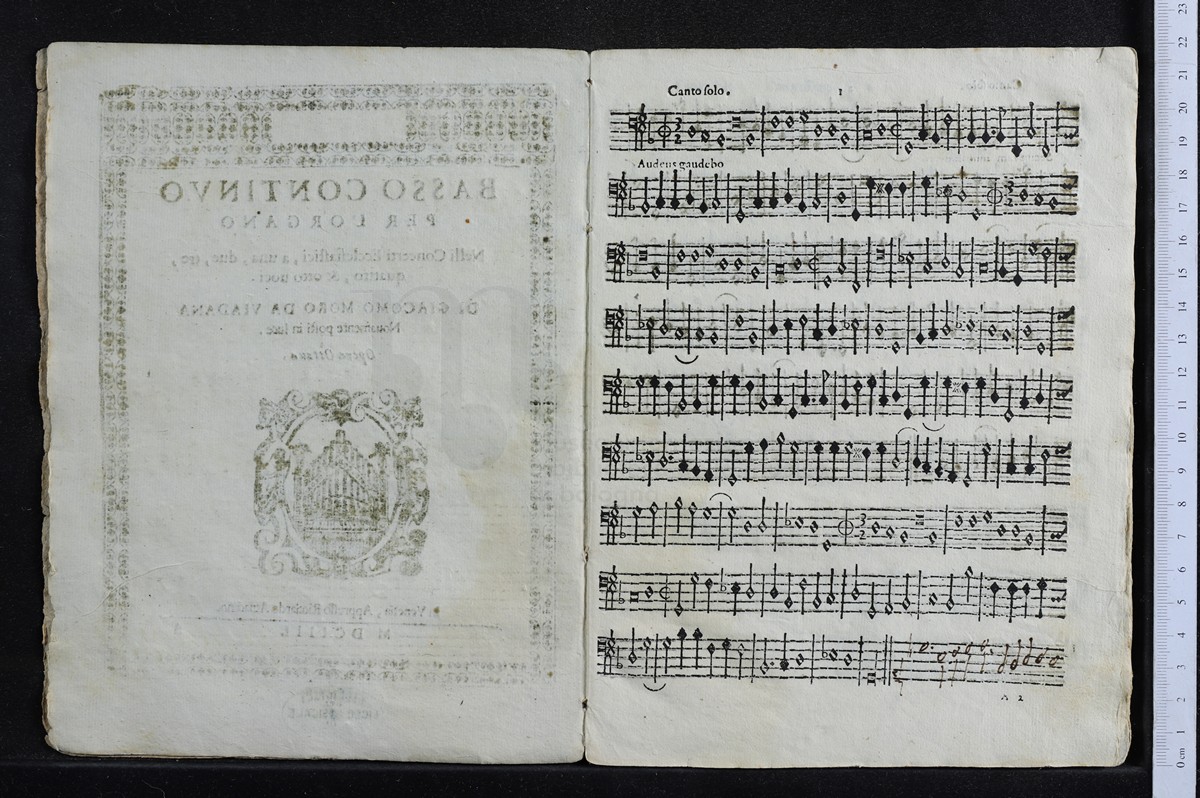 BASSO CONTINVO
PER L'ORGANO
Nelli Concerti Ecclesiastici, a una, due, tre,
quattro, & otto uoci.
DI GIACOMO MORO DA VIADANA
Nouamente posti in luce.
Opera Ottaua.
In Venetia, Appresso Ricciardo Amadino.
Canto solo.
1
Audens gaudebo
A 2
23
22
21
20
19
18
17
16
15
14
13
12
11
10
9
8
7
6
5
4
3
2
1
0 cm